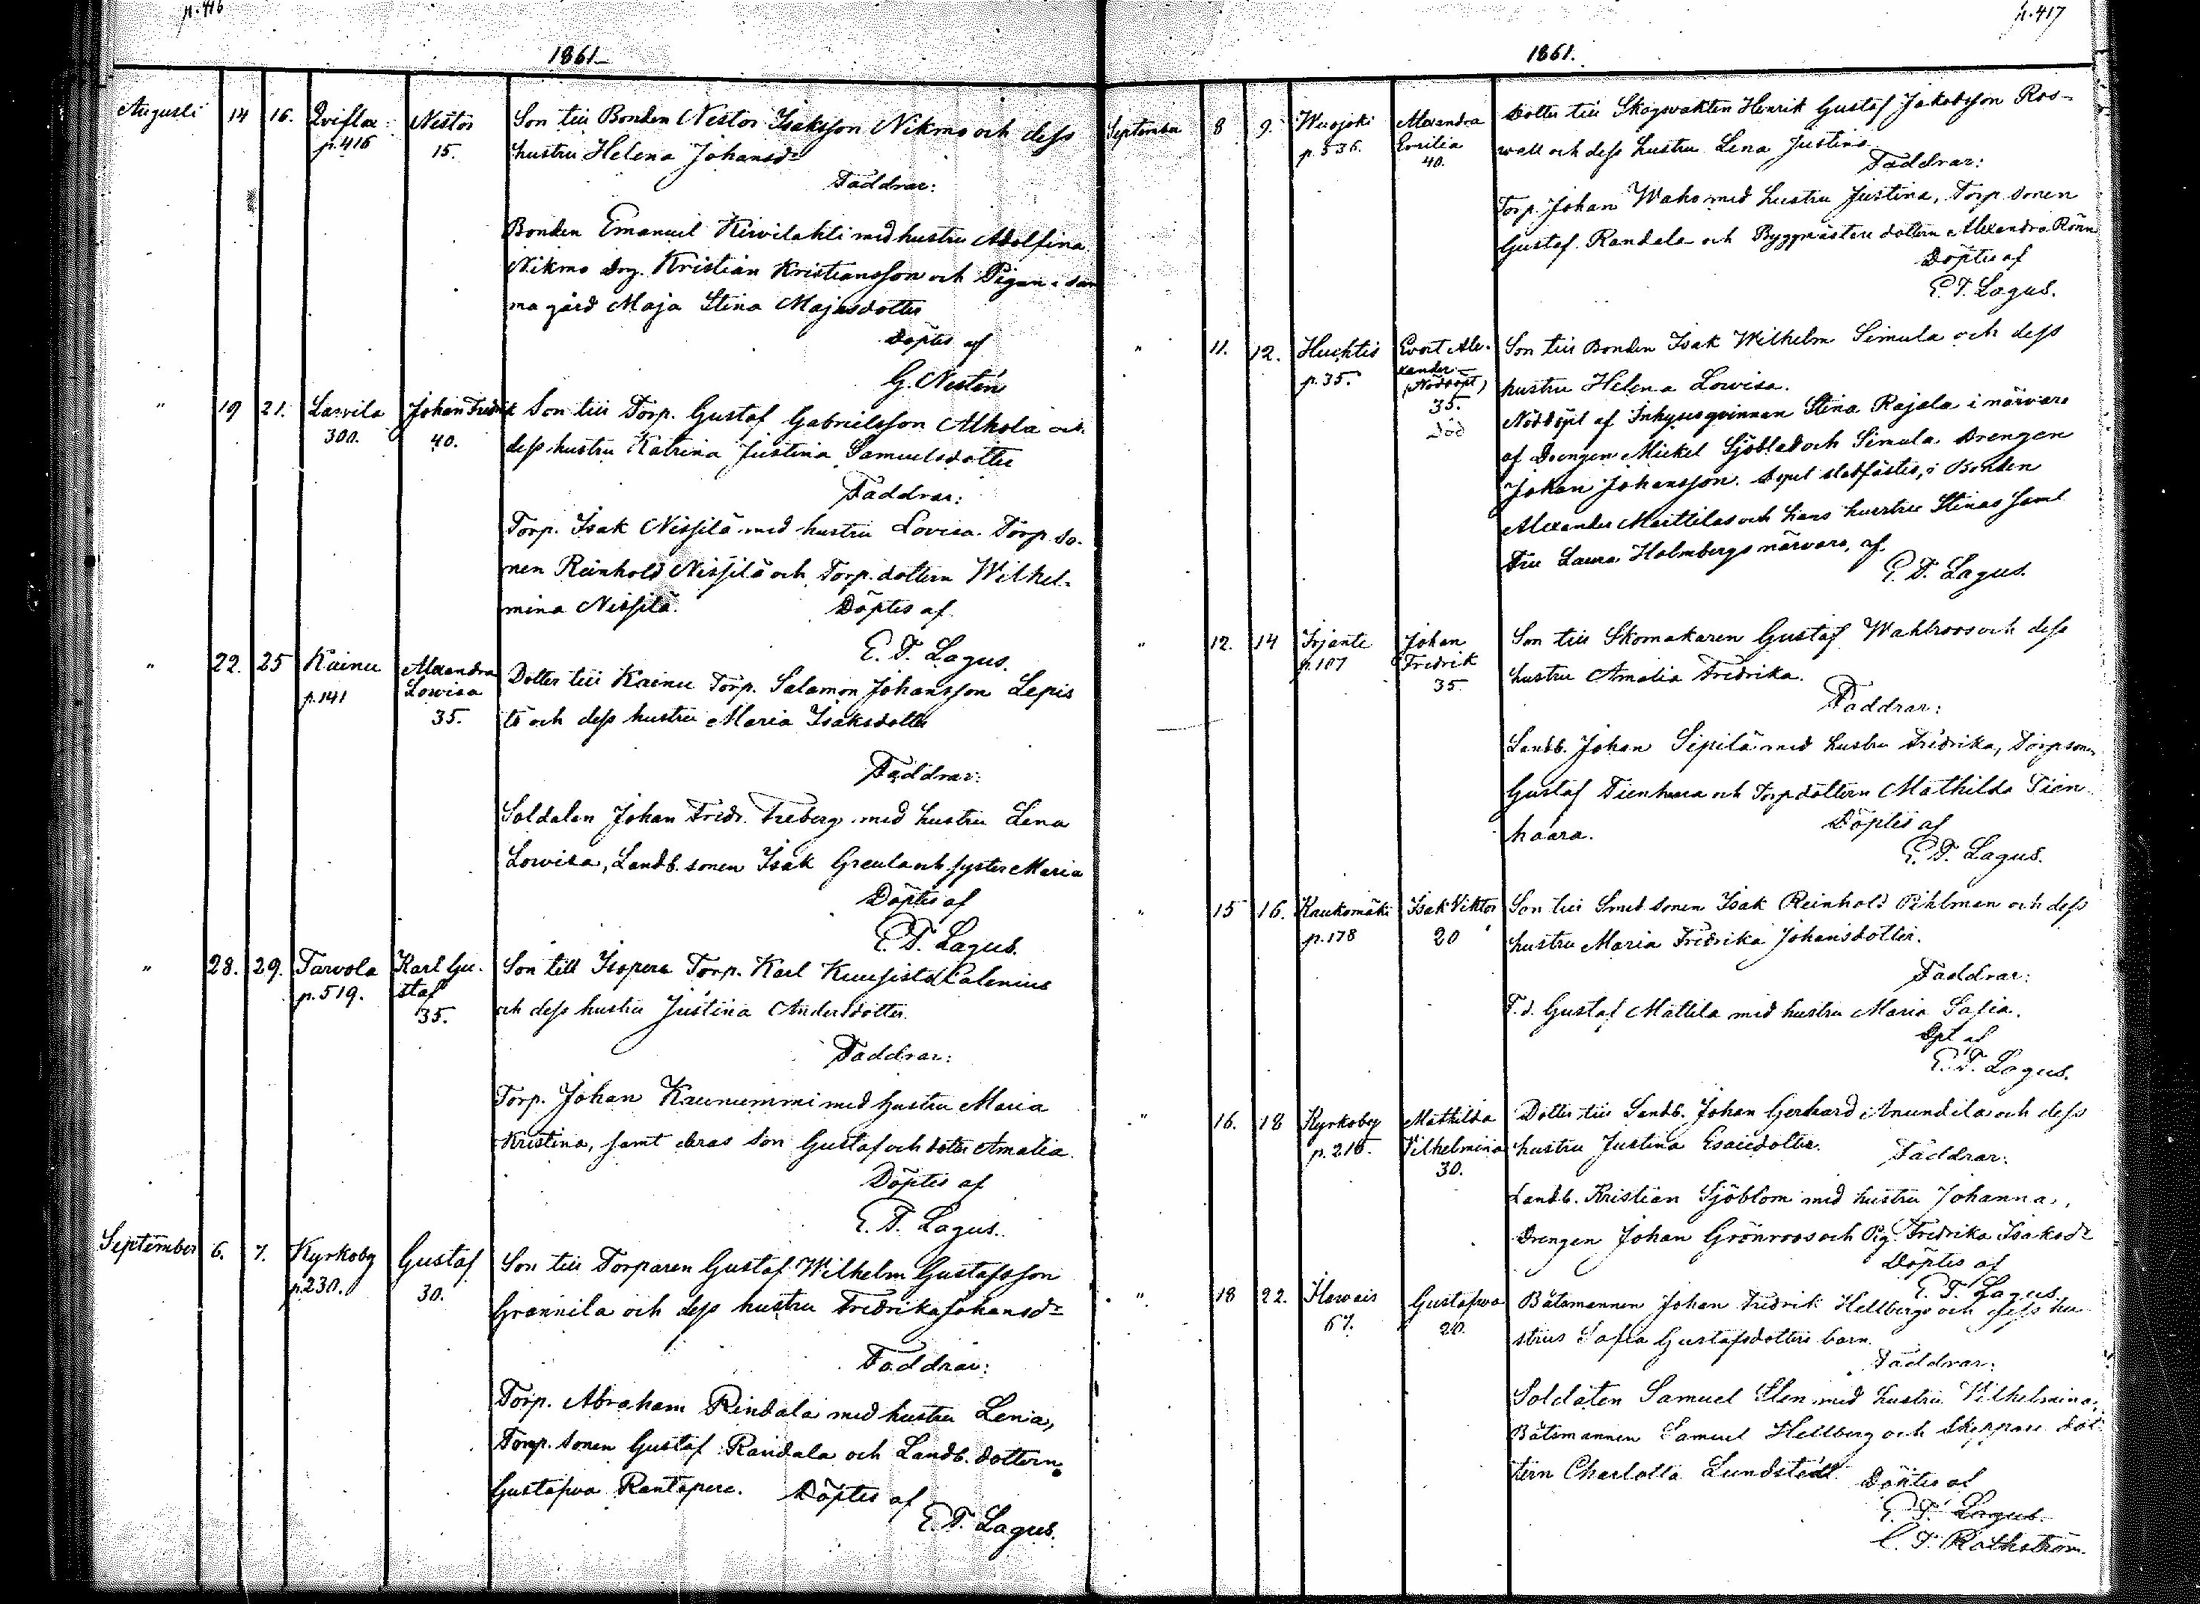 p. 416
1861.
Augusti 14 16. Qviflax p. 416 Nestor 15.
Son till Bonden Nestor Isaksson Nikmo och dess
hustru Helena Johansdr
Faddrar:
Bonden Emanuel Kirvilahti med hustru Adolfina
Nikmo Drg. Kristian Kristiansson och Pigan i sam
ma gård Maja Stina Majasdotter
Döptes af
G. Nestén
" 19 21. Lasvila 300. Johan Fredrik 40.
Son till Torp. Gustaf Gabrielsson Alhola och
dess hustru Katrina Justina Samuelsdotter
Faddrar:
Torp. Isak Nissilä med hustru Lovisa. Torp. so-
nen Reinhold Nissilä och Torp. dottern Wilhel-
mina Nissilä. Döptes af
E. T. Lagus.
" 22. 25 Kainu p. 141 Alexandra Lowisa 35.
Dotter till Kainu Torp. Salamon Johansson Lepis
tö och dess hustru Maria Isaksdotter
Faddrar:
Soldaten Johan Fredr. Freberg med hustru Lena
Lowisa, Landb. sonen Isak Greula och syster Maria
Döptes af
E. T. Lagus.
" 28. 29. Tarvola p. 519. Karl Gu-
staf 35.
Son till Isopere Torp. Karl Kuusisto Calenius
och dess hustru Justina Andersdotter.
Faddrar:
Torp. Johan Kaunummi med hustru Maria
Kristina, samt deras son Gustaf och dotter Amalia.
Döptes af
E. T. Lagus.
September 6. 7. Kyrkoby p. 230. Gustaf 30.
Son till Torparen Gustaf Wilhelm Gustafsson
Grannila och dess hustru Fredrika Johansdr
Faddrar:
Torp. Abraham Rindala med hustru Lena,
Torp. sonen Gustaf Randala och Landb. dottern
Gustafwa Rantapere. Döptes af
E. T. Lagus.
p. 417
1861.
September 8 9. Wuojoki p. 536. Alexandra Emilia 40.
Dotter till Skogsvakten Henrik Gustaf Jakobsson Ros-
wall och dess hustru Lena Justina
Faddrar:
Torp. Johan Waho med hustru Justina, Torp. sonen
Gustaf Randala och Byggmästare dottern Alexandra Rönn
Döptes af
E. T. Lagus.
" 11. 12. Huchtis p. 35. Evert Ale-
xander (Nöddöpt) 35. Död
Son till Bonden Isak Wilhelm Simula och dess
hustru Helena Lowisa.
Nöddöpt af Inhysesqvinnan Stina Rajala i närvaro
af Drengen Mickel Sjöblad och Simula Drengen
Johan Johansson. Dopet stadfästes, i Bonden
Alexander Mattilas och hans hustru Stinas samt
Fru Laura Holmbergs närvaro, af
E. T. Lagus.
" 12. 14 Irjante p. 107 Johan Fredrik 35.
Son till Skomakaren Gustaf Wahlroos och dess
hustru Amalia Fredrika.
Faddrar:
Landb. Johan Sipilä med hustru Fredrika, Torp sonen
Gustaf Tienhaara och Torp dottern Mathilda Tien-
haara. Döptes af
E. T. Lagus.
" 15 16. Kaukomäki p. 178 Isak Viktor 20
Son till Smed sonen Isak Reinhold Pihlman och dess
hustru Maria Fredrika Johansdotter.
Faddrar:
F. d. Gustaf Mattila med hustru Maria Safia.
Dpt af
E. T. Lagus.
" 16. 18 Kyrkoby p. 216. Mathilda Vilhelmina 30.
Dotter till Landb. Johan Gerhard Anundila och dess
hustru Justina Esaiedotter. Faddrar:
Landb. Kristian Sjöblom med hustru Johanna,
Drengen Johan Grönroos och Pig. Fredrika Isaksdr
Döptes af
E. T. Lagus.
" 18 22. Ilawais 67. Gustafwa 20.
Båtsmannen Johan Fredrik Hellbergs och dess hu-
strus Safia Gustafsdotters barn.
Faddrar:
Soldaten Samuel Slen med hustru Vilhelmina,
Båtsmannen Samuel Hellberg och Skeppare dot-
tern Charlotta Lundstedt Döptes af
E. T. Lagus.
C. F. Rothström.